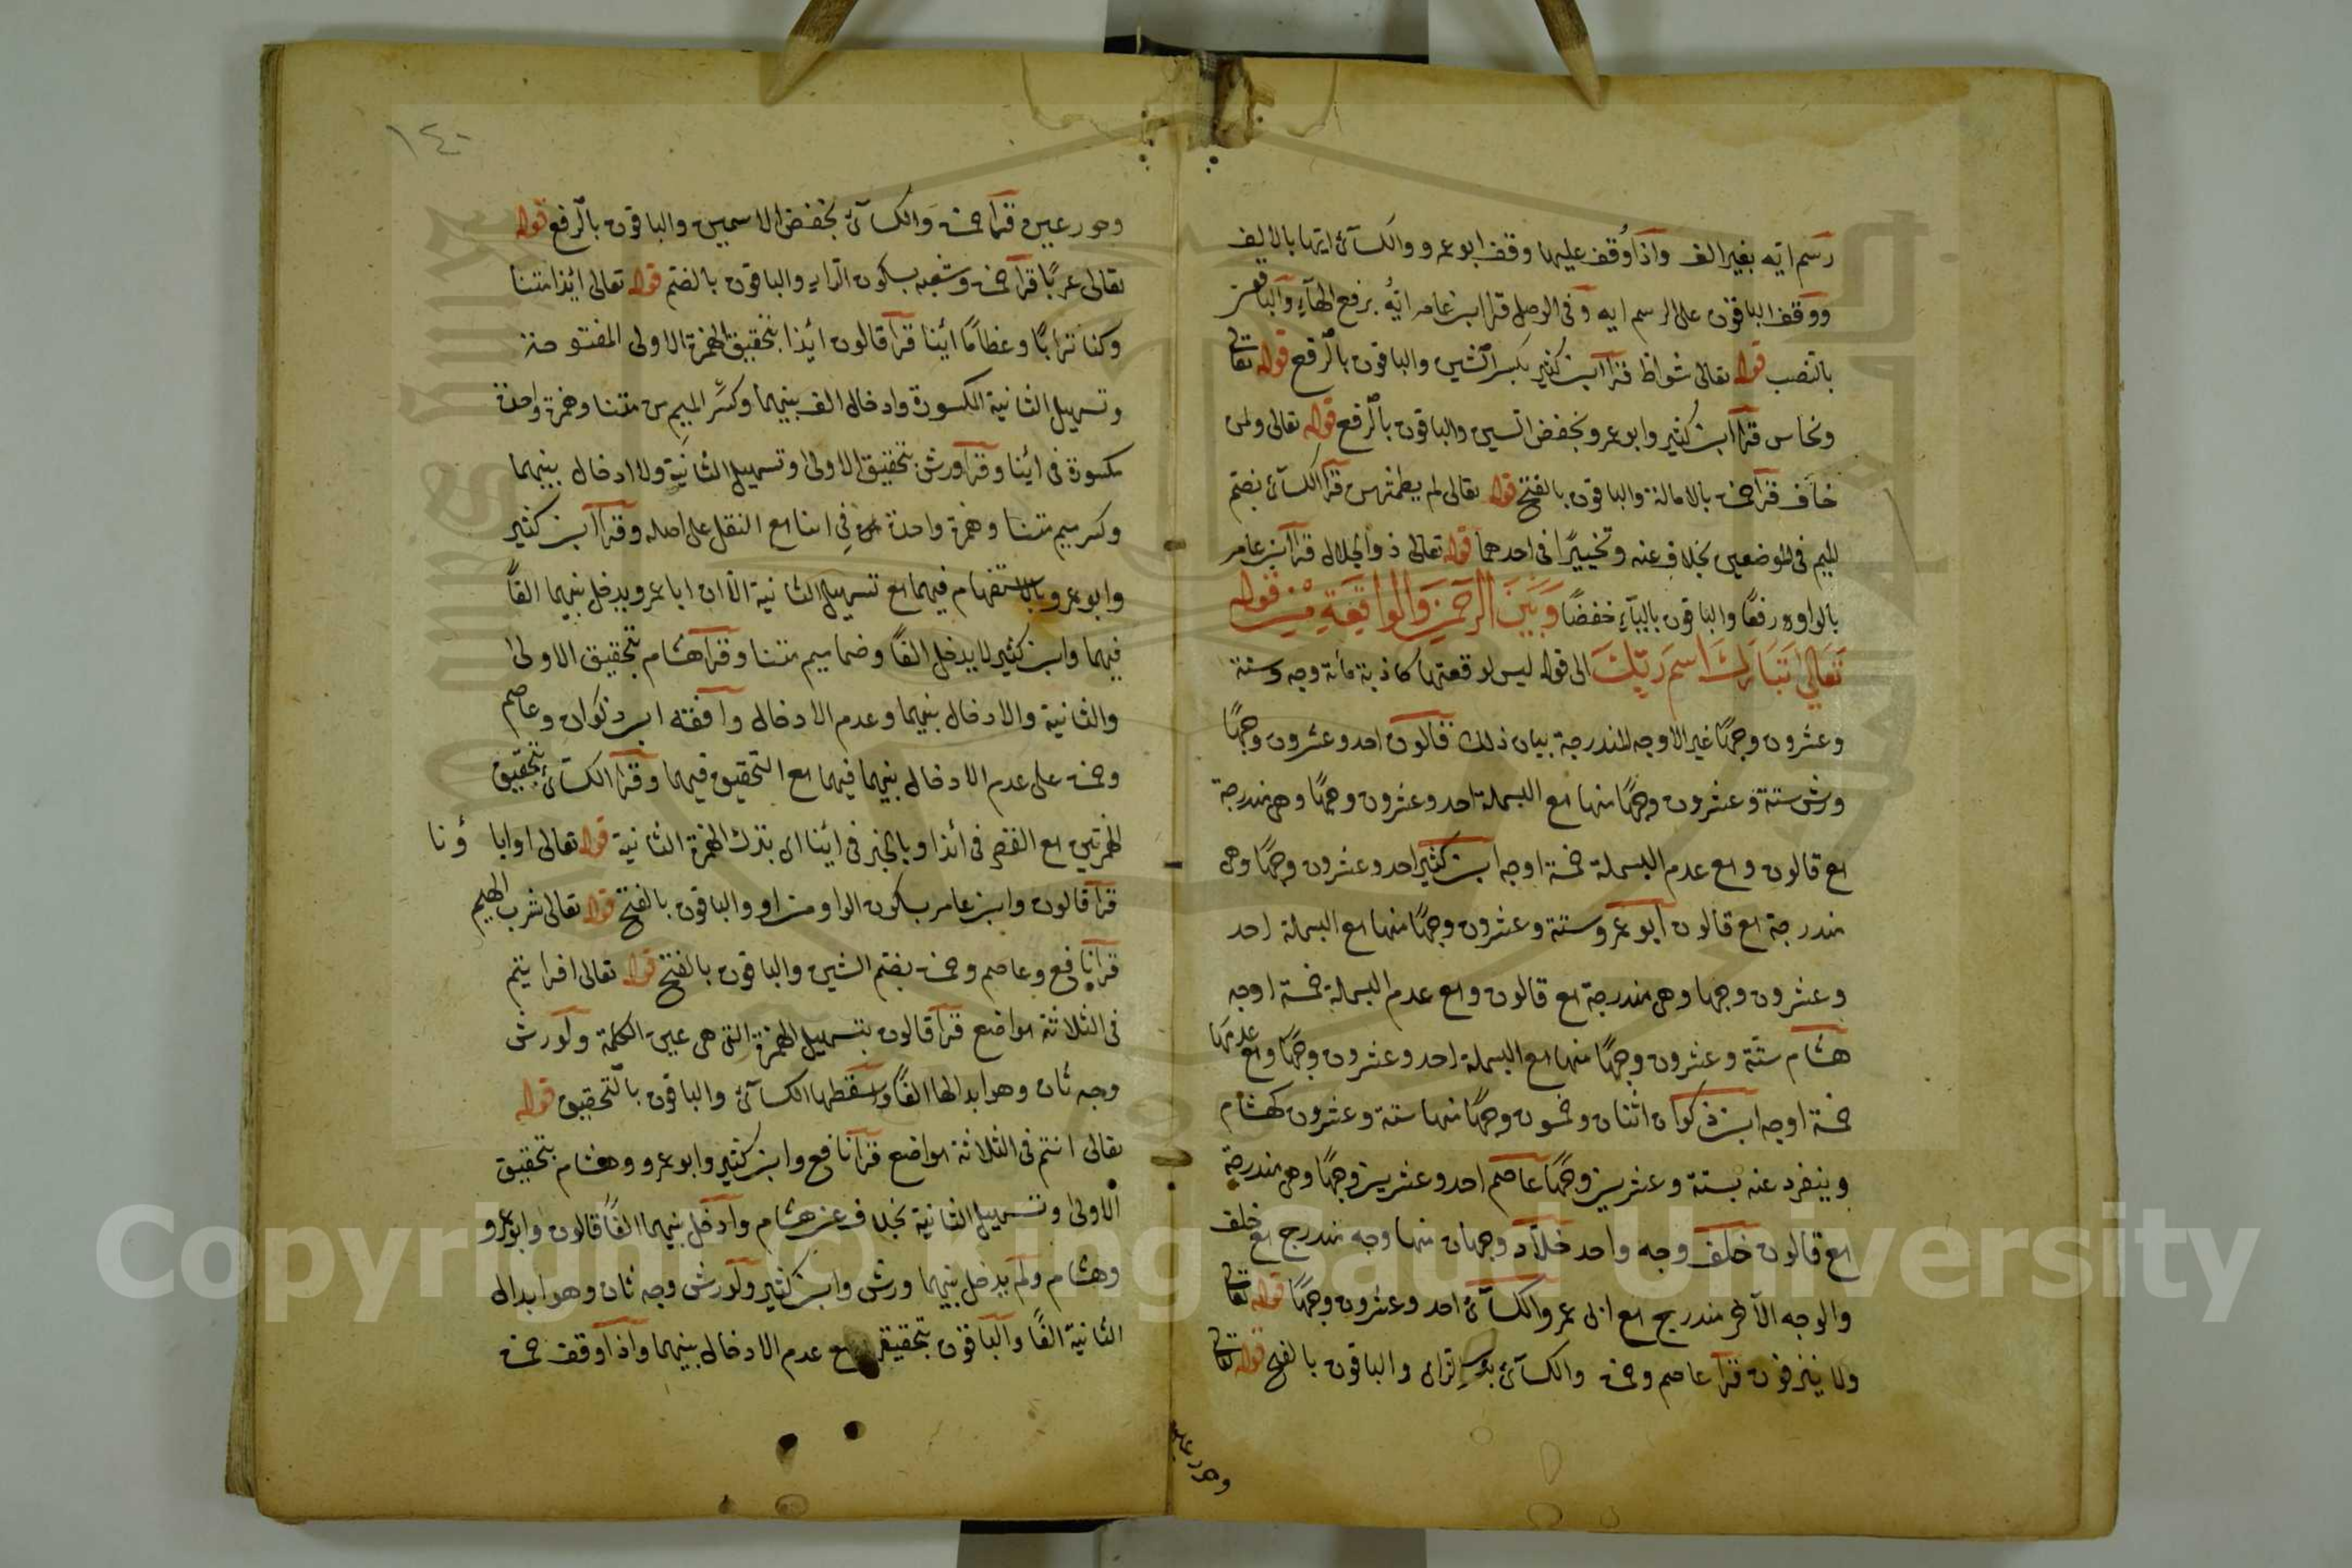 رسم ايه بغير الف واذا وقف عليها وقف ابو عمرو والكسآئى ايها بالالف
ووقف الباقون على الرسم ايه وفى الوصل قرا ابن عامر ايُّه برفع الهآء والباقون
بالنصب قوله تعالى شواظ قرا ابن كثير بكسر الشين والباقون بالرفع قوله تعالى
ونحاس قرا ابن كثير وابو عمرو بخفض السين والباقون بالرفع قوله تعالى ولمن
خاف قرا حمزة بالامالة والباقون بالفتح قوله تعالى لم يطمثهن قرا الكسآئى بضم
الميم فى الموضعين بخلاف عنه وتخييرًا فى احدهما قوله تعالى ذو الجلال قرا ابن عامر
بالواو رفعًا والباقون باليآء خفضًا وَبَيْنَ الرَّحْمٰنِ وَالواقِعَةِ مِنْ قوله
تَعَالىٰ تَبَارَكَ اسمَ رَبِّكَ الى قوله ليس لوقعتها كاذبة مائة وجه وستة
وعشرون وجهًا غير الاوجه المندرجة بيان ذلك قالون احد وعشرون وجهًا
ورش ستة وعشرون وجهًا منها مع البسملة احد وعشرون وجهًا وهى مندرجة
مع قالون ومع عدم البسملة خمسة اوجه ابن كثير احد وعشرون وجهًا وهى
مندرجة مع قالون ابو عمرو ستة وعشرون وجهًا منها مع البسملة احد
وعشرون وجها وهى مندرجة مع قالون ومع عدم البسملة خمسة اوجه
هشام ستّة وعشرون وجهًا منها مع البسملة احد وعشرون وجهًا ومع عدمها
خمسة اوجه ابن ذكوان اثنان وخمسون وجهًا منها ستة وعشرون كهشام
وينفرد عنه بستة وعشرين وجهًا عاصم احد وعشرين وجهًا وهى مندرجة
مع قالون خلف وجه واحد خلاّد وجهان منها وجه مندرج مع خلف
والوجه الآخر مندرج مع ابى عمرو الكسآئى احد وعشرون وجهًا قوله تعالى
ولا ينزفون قرا عاصم وحمزة والكسآئى بكسر الزاى والباقون بالفتح قوله تعالى
وحور عين
١٤٠
وحور عين قرا حمزة والكسآئى بخفض الاسمين والباقون بالرفع قوله
تعالى عربًا قرا حمزة وشعبه بسكون الراء والباقون بالضم قوله تعالى ائذا متنا
وكنا ترابًا وعظامًا أئنا قرا قالون ائذا بتحقيق الهمزة الاولى المفتوحة
وتسهيل الثانية المكسورة وادخال الف بينهما وكسر الميم من متنا وهمزة واحدة
مكسورة فى ائنا وقرا ورش بتحقيق الاولى وتسهيل الثانية ولا ادخال بينهما
وكسر ميم متنا وهمزة واحدة فِى اننا مع النقل على اصله وقرا ابن كثير
وابو عمرو بالاستفهام فيهما مع تسهيل الثانية الّا ان ابا عمرو يدخل بينهما الفًا
فيهما وابن كثير لا يدخل الفًا وضما ميم متنا وقرا هشام بتحقيق الاولى
والثانية والادخال بينهما وعدم الادخال وافقه ابن ذكوان وعاصم
وحمزة على عدم الادخال بينهما فيهما مع التحقيق فيهما وقرا الكسآئى بتحقيق
الهمزتين مع القصر فى ائذا وبالخبر فى ائنا اى بترك الهمزة الثانية قوله تعالى اوابا ؤنا
قرا قالون وابن عامر بسكون الواو من او والباقون بالفتح قوله تعالى شرب الهيم
قرا نافع وعاصم وحمزة بضم الشين والباقون بالفتح قوله تعالى افرايتم
فى الثلاثة مواضع قرا قالون بتسهيل الهمزة التى هى عين الكلمة ولورش
وجه ثان وهو ابدالها الفًا واسقطها الكسآئى والباقون بالتحقيق قوله
تعالى اانتم فى الثلاثة مواضع قرا نافع وابن كثير وابو عمرو وهشام بتحقيق
الاولى وتسهيل الثانية بخلاف عن هشام وادخل بينهما الفًا قالون وابو عمرو
وهشام ولم يدخل بينهما ورش وابن كثير ولورش وجه ثان وهو ابدال
الثانية الفًا والباقون بتحقيقهما مع عدم الادخال بينهما واذا وقف حمزة
Copyright © King Saud University